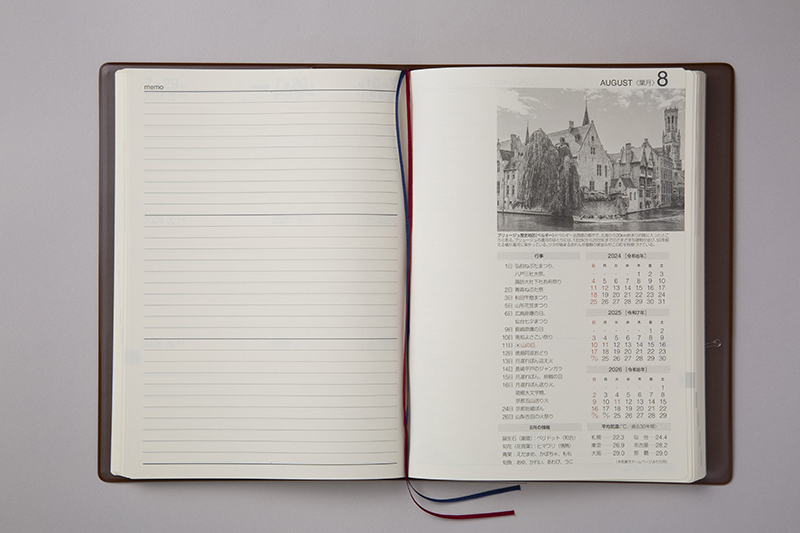 memo
AUGUST〈葉月〉8
行事
1日 弘前ねぷたまつり、
八戸三社大祭、
諏訪大社下社お舟祭り
2日 青森ねぶた祭
3日 秋田竿燈まつり
5日 山形花笠まつり
6日 広島原爆の日、
仙台七夕まつり
9日 長崎原爆の日
10日 高知よさこい祭り
11日 山の日
12日 徳島阿波おどり
13日 月遅れぼん迎え火
14日 長崎平戸のジャンガラ
15日 月遅れぼん、終戦の日
16日 月遅れぼん送り火、
箱根大文字焼、
京都五山送り火
24日 京都地蔵ぼん
26日 山梨吉田の火祭り
8月の情報
誕生石（宝石）：ペリドット（和合）
旬花（花言葉）：ヒマワリ（情熱）
青果：えだまめ、かぼちゃ、もも
旬魚：あゆ、かれい、あわび、うに
2024 ［令和6年］
日 月 火 水 木 金 土
1 2 3
4 5 6 7 8 9 10
11 12 13 14 15 16 17
18 19 20 21 22 23 24
25 26 27 28 29 30 31
2025 ［令和7年］
日 月 火 水 木 金 土
1 2
3 4 5 6 7 8 9
10 11 12 13 14 15 16
17 18 19 20 21 22 23
25 26 27 28 29 30
2026 ［令和8年］
日 月 火 水 木 金 土
1
2 3 4 5 6 7 8
9 10 11 12 13 14 15
16 17 18 19 20 21 22
25 26 27 28 29
平均気温（℃／過去30年間）
札幌 22.3 仙台 24.4
東京 26.9 名古屋 28.2
大阪 29.0 那覇 29.0